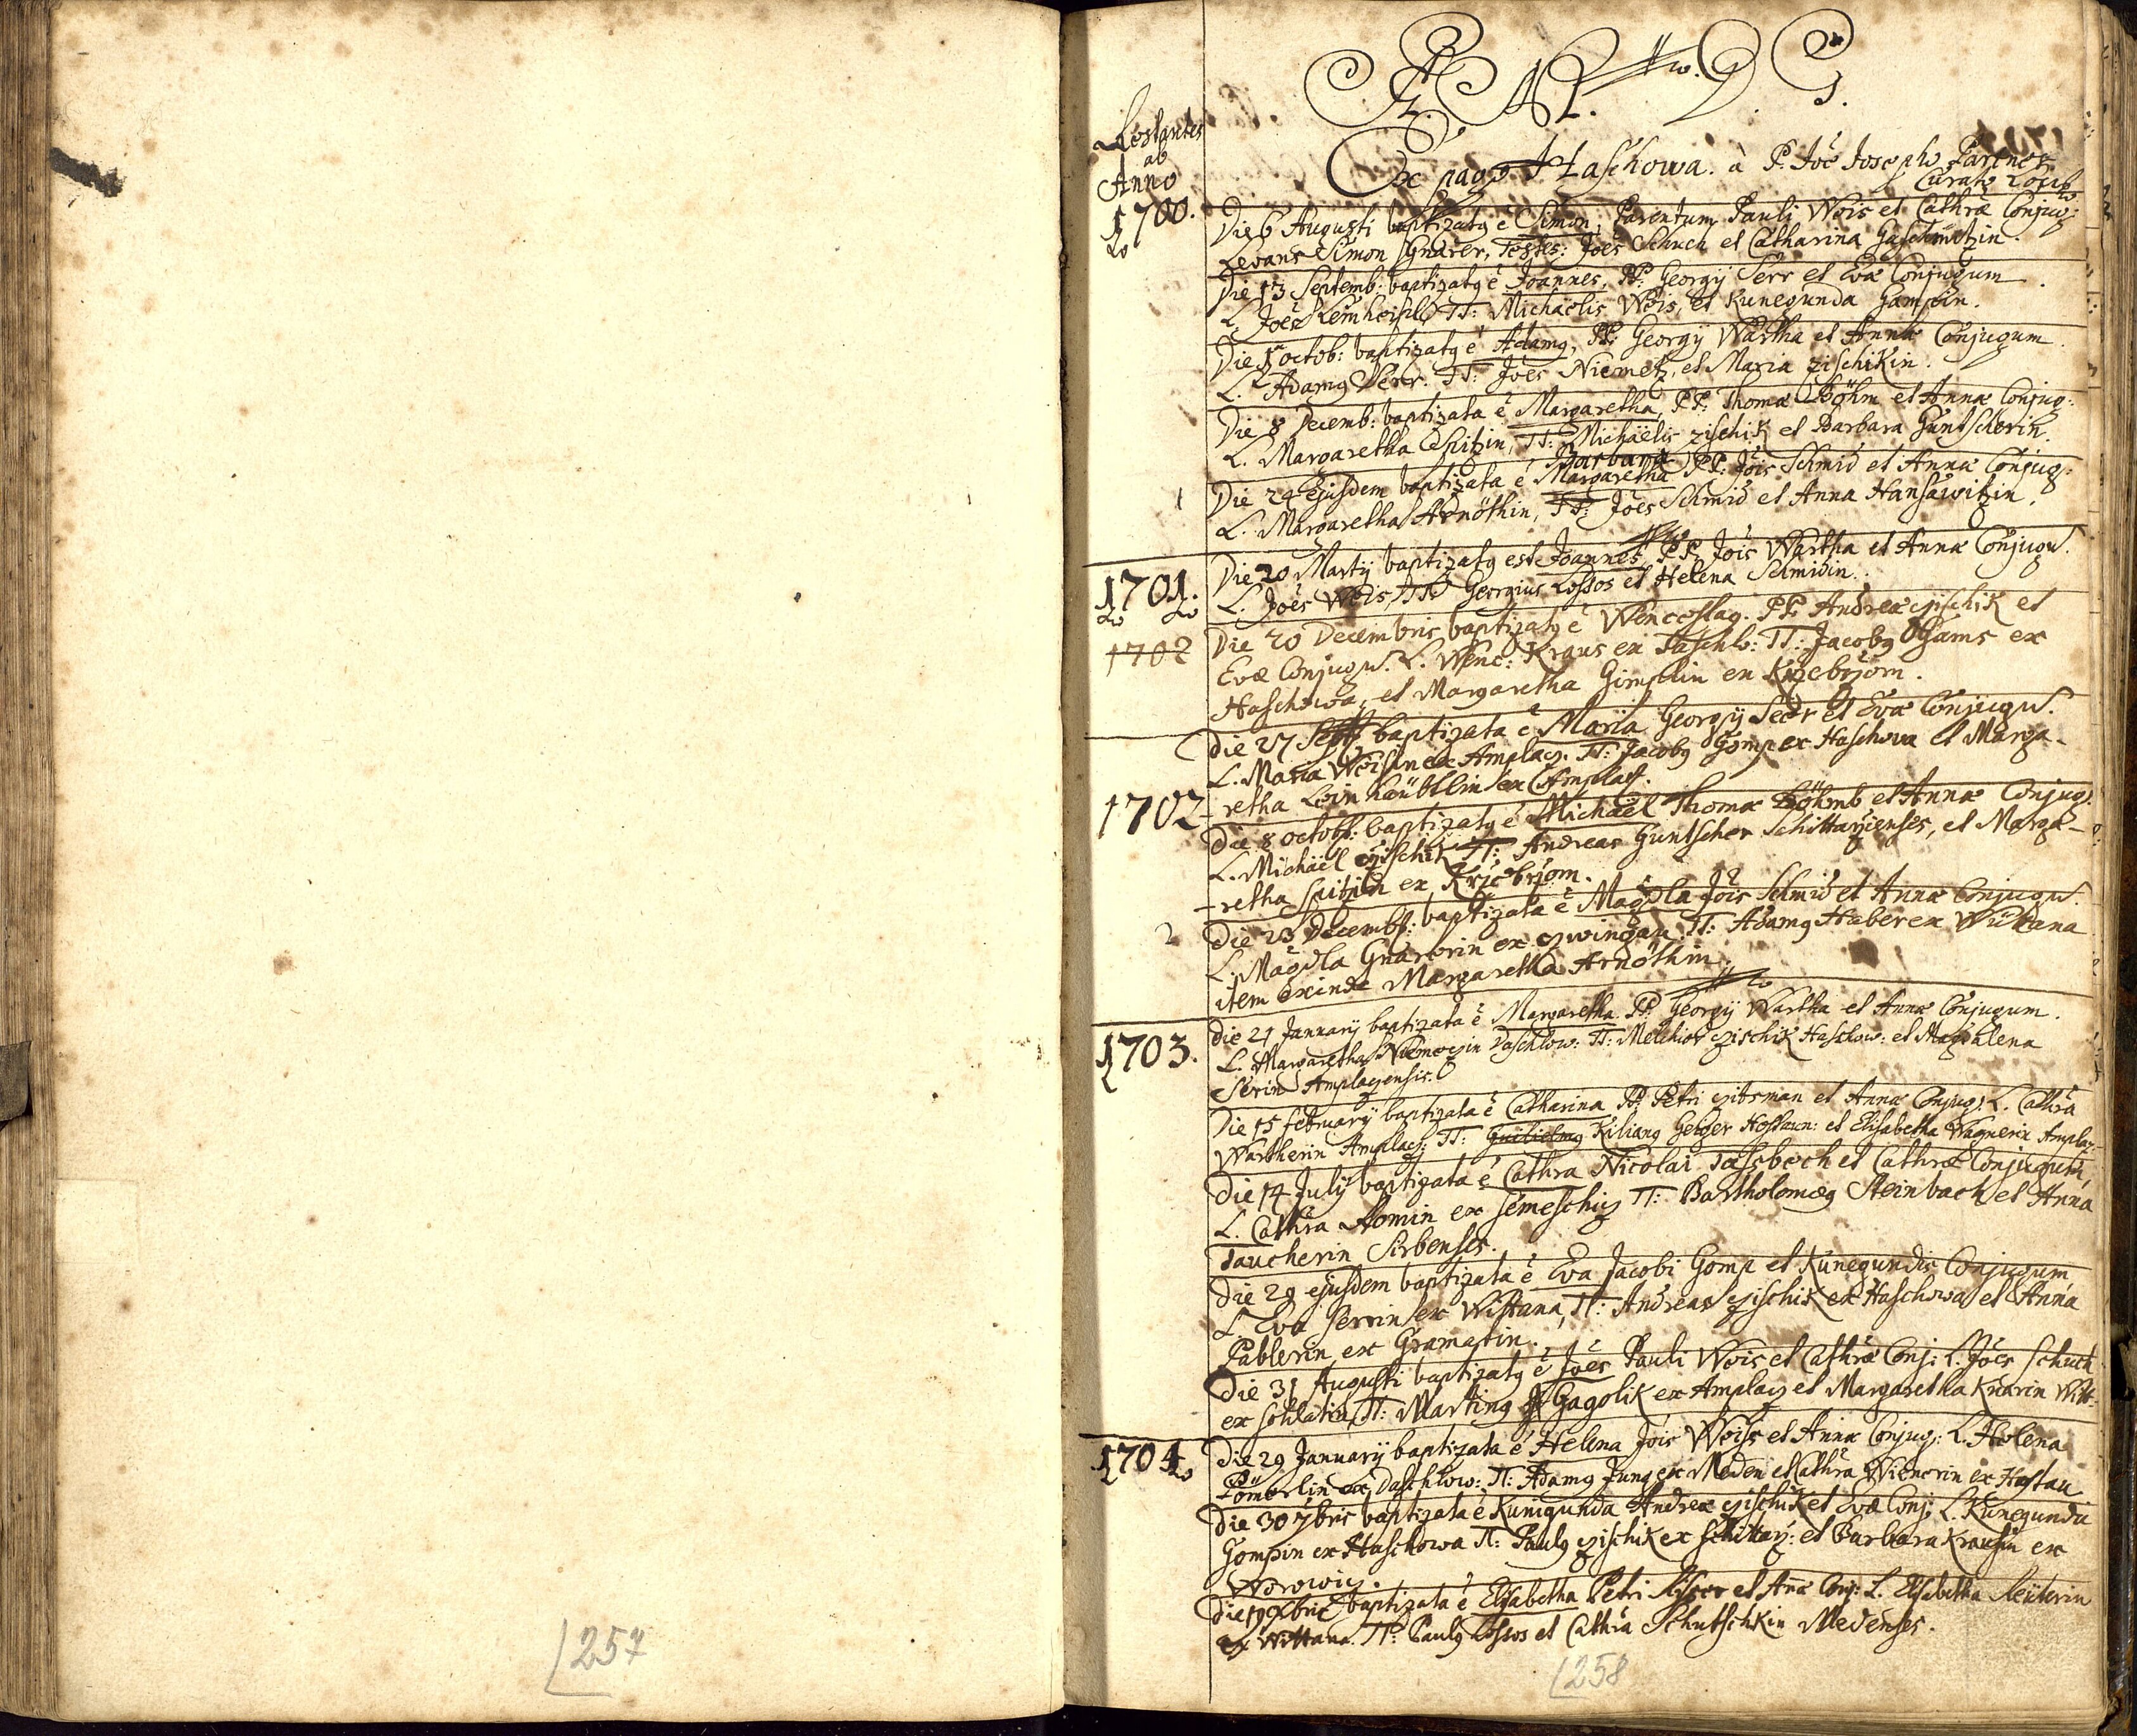 Ex pago Haschowa. à P. Joë Josepho
Curato
ab
Anno
1700.
Die 6 Augusti baptizatq ē Simon, Parentum Pauli Weis et Cathræ Conjug:
Levans Simon Gnärer, Testes: Joēs Schuch et Catharina
Die 13 Septemb: baptizatq ē Joannes, PP: Georgÿ Serr et Evæ Conjugum.
L. Joēs TT: Michäelis Weis, et Kunegunda Gampin.
Die 1 octob: baptizatq ē Adamq, PP: Georgÿ Wartha et Annæ Conjugum.
L. Adamq Serr. TT: Joēs Niemetz, et Maria zischikin.
Die 8 Decemb: baptizata ē Margaretha, PP: Thomæ Böhm et Annæ Conjug:
L. Margaretha Spitzin, TT: Michäelis zischik et Barbara Guntscherin.
Barbara
Die 24 Ejusdem baptizata ē Margaretha PP: Jōis Schmid et Annæ Conjug:
L. Margaretha Arnöthin, TT: Joēs Schmid et Anna Hansawitzin.
1701.
Die 20 Martÿ baptizatq est Joannes, PP: Jōis Wartha et Annæ Conjug.
L. Joēs Weis, TT: Georgius Lossos et Helena Schmidin.
1702
Die 20 Decembris baptizatq ē Wenceslaq. PP: Andreæ zischik et
Evæ Conjug. L. Wenc: Kraus ex Taschlo: TT: Jacobq Gams ex
Haschowa, et Margaretha Gimplin ex Krzebrzom.
Die 27 baptizata ē Maria Georgÿ Seer et Evæ Conjug.
L. Maria Weisin ex Amplaz. TT: Jacobq Gomp ex Haschova et Marga-
1702
-retha ex Amplaz.
Die 8 octobr: baptizatq ē Michäel Thomæ Böhmb et Annæ Conjug.
L. Michäel zischik TT: Andreas Guntscher Schittarzienses, et Marga-
-retha Spitzin ex Krzebrzom.
2
Die 23 Decembr: baptizata ē Magdla Jōis Schmid et Annæ Conjug.
L. Magdla Gnärerin ex zwingau. TT: Adamq Haber ex Wittana
item exinde Margaretha Arnöthin.
1703.
Die 21 Januarÿ baptizata ē Margaretha PP: Georgÿ Wartha et Annæ Conjugum.
L. Margaretha Niemezin Daschlow: TT: Melchior zischik Haschow: et Magdalena
Serin Amplazensis.
Die 15 februarÿ baptizata ē Catharina PP: Petri zitsman et Annæ Conjug: L. Cathra
Wartherin Amplaz: TT: Guilielmq Kilianq Geiger Hostaun: et Elisabetha Wagnerin Amplaz
Die 14 Julÿ baptizata ē Cathra Nicolai et Cathræ Conjugum
L. Cathra ex semeschiz TT: Bartholomæq Steinbach et Anna
Taucherin Sirbenses.
Die 29 ejusdem baptizata ē Eva Jacobi Gomp et Kunegundis Conjugum
L. Eva Serrin ex Wittana, TT: Andreas zischik ex Haschowa et Anna
Pablerin ex Gramatin.
Die 31 Augusti baptizatq ē Joēs Pauli Weis et Cathræ Conj: L. Joēs Schuch
ex TT: Martinq Gagolik ex Amplaz et Margaretha Knarin Witt:
1704
Die 29 Januarÿ baptizata ē Helena Jōis Weiss et Annæ Conjug: L. Helena
Pömerlin ex Daschlow: TT: Adamq Jung ex Meden et Cathra Wienerin ex Hostau
Die 30 7bris baptizata ē Kunigunda Andreæ zischik et Evæ Conj: L. Kunegunda
Gompin ex Haschowa TT: Paulq zischik ex Schittarz: et Barbara Krausin ex
Worowiz.
Die 19 Xbris baptizata ē Elisabetha Petri et Annæ Conj: L. Elisabetha Reuterin
ex Wittana. TT: Paulq Lossos et Cathra Schutschkin Medenses.
257
258